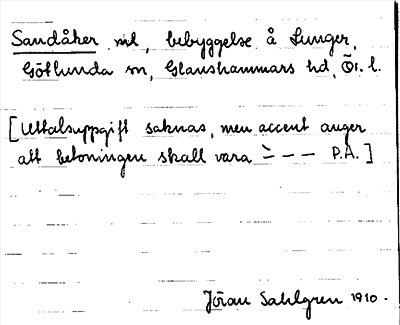 Sandåker, bebyggelse å Lunger,
Götlunda sn, Glanshammars hd, Ör. l.
[Uttalsuppgift saknas, men accent anger
att betoningen skall vara – – – P.Å.]
Jöran Sahlgren 1910.